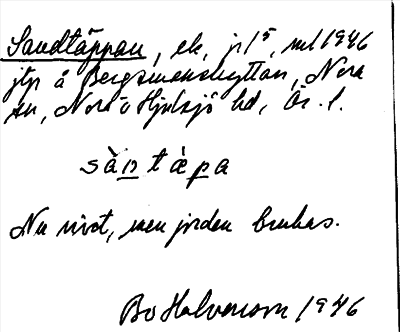 Sandtäppan, ek, jr 1⁵, ml 1946
jtp å Bergsmanshyttan, Nora
sn, Nora o Hjulsjö hd, Ör. l.
sàntàpa
Nu rivet, men jorden brukas.
Bo Halvarson 1946